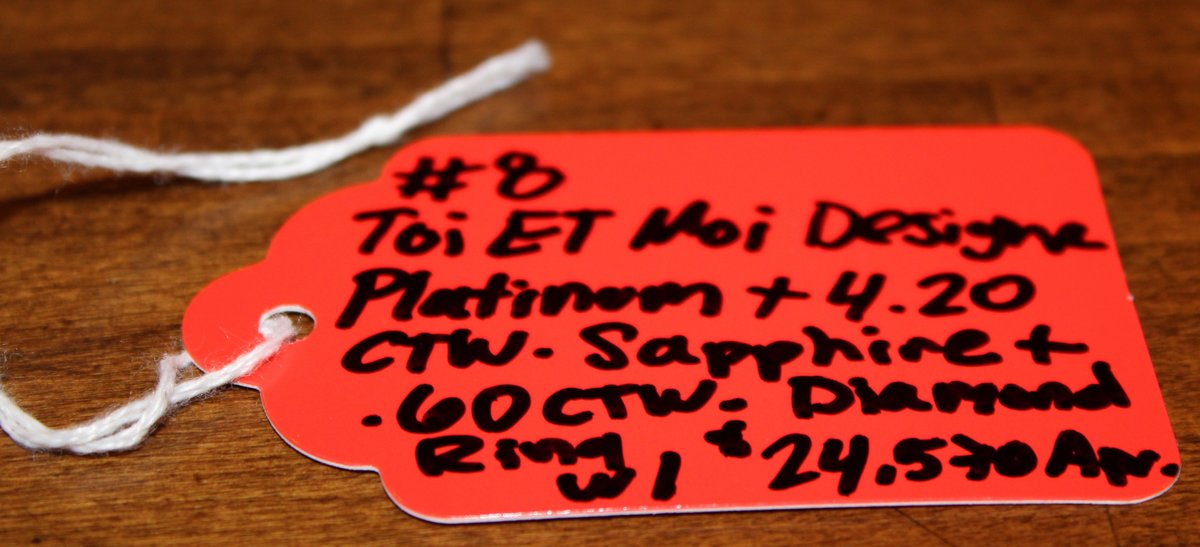 #8
Toi ET Moi Designe
Platinum + 4.20
CTW. Sapphire +
.60 CTW. Diamond
Ring w/ $24,570 Apr.